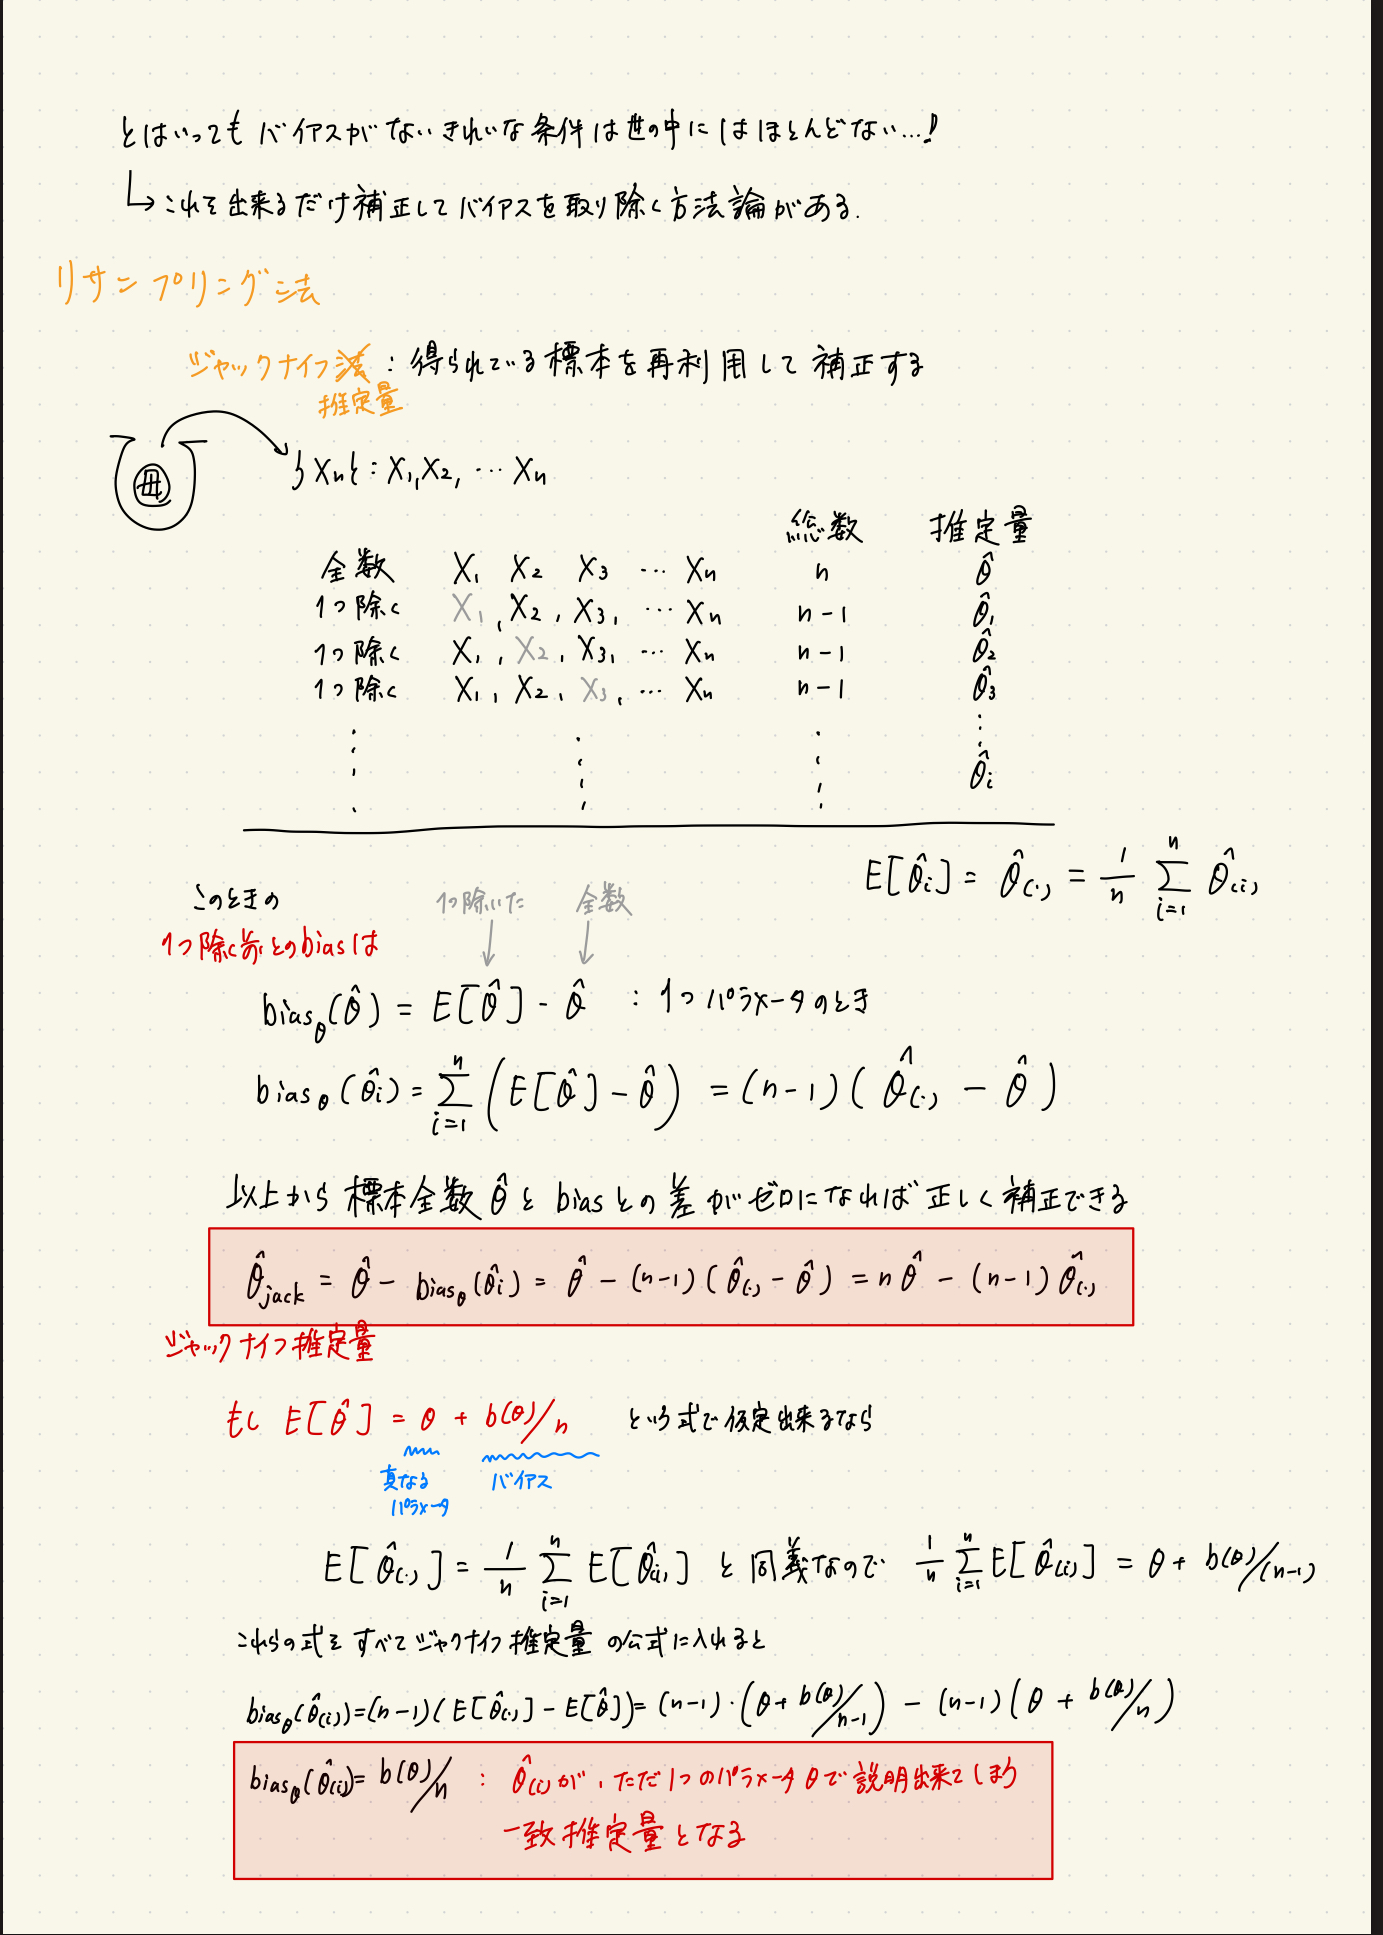 とはいっても バイアスがない きれいな 条件は 世の中には ほとんどない…!
↳ これを 出来るだけ 補正して バイアスを 取り除く 方法論がある.
リサンプリング法
ジャックナイフ法 : 得られている標本を再利用して 補正する
推定量
母 {Xn} : X1, X2, … Xn
総数 推定量
全数 X1 X2 X3 … Xn n θ̂
1つ除く X1, X2, X3, … Xn n-1 θ̂1
1つ除く X1, X2, X3, … Xn n-1 θ̂2
1つ除く X1, X2, X3, … Xn n-1 θ̂3
θ̂i
E[θ̂i] = θ̂(·) = 1/n Σ_{i=1}^{n} θ̂(i)
このときの 1つ除いた 全数
1つ除く前とのbiasは
bias_θ(θ̂) = E[θ̂] - θ̂ : 1つパラメータのとき
bias_θ(θ̂i) = Σ_{i=1}^{n} (E[θ̂] - θ̂) = (n-1)(θ̂(·) - θ̂)
以上から 標本全数 θ̂ と bias との 差 がゼロになれば 正しく 補正できる
θ̂jack = θ̂ - bias_θ(θ̂i) = θ̂ - (n-1)(θ̂(·) - θ̂) = nθ̂ - (n-1)θ̂(·)
ジャックナイフ推定量
もし E[θ̂] = θ + b(θ)/n という式で仮定出来るなら
真なる パラメータ バイアス
E[θ̂(·)] = 1/n Σ_{i=1}^{n} E[θ̂(i)] と 同義なので 1/n Σ_{i=1}^{n} E[θ̂(i)] = θ + b(θ)/(n-1)
これらの式を すべて ジャクナイフ推定量 の公式に入れると
bias_θ(θ̂(i)) = (n-1)(E[θ̂(·)] - E[θ̂]) = (n-1)·(θ + b(θ)/n-1) - (n-1)(θ + b(θ)/n)
bias_θ(θ̂(i)) = b(θ)/n : θ̂(i)が, ただ1つのパラメータθで説明出来てしまう
一致推定量となる